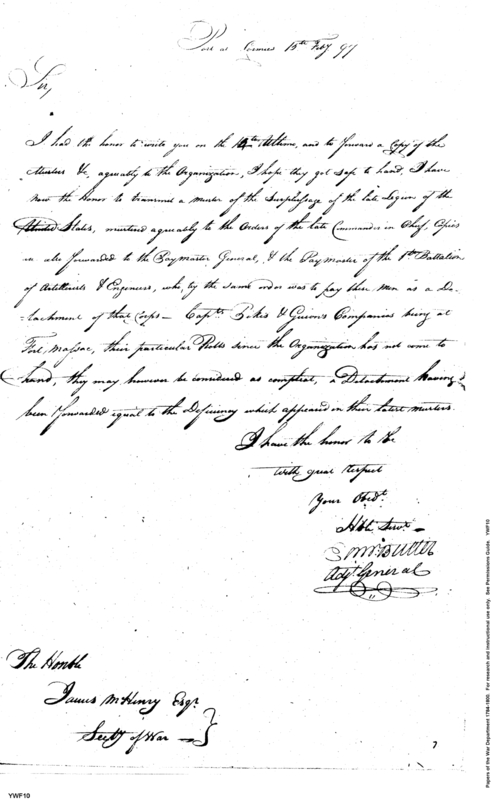 Post at Lormier 15th Feby 97
Sir,
I had the honor to write you on the 14th Ultimo, and to forward a Copy of the
Musters &c. agreeably to the Organization, I hope they got safe to hand, I have
now the Honor to transmit a muster of the Surplussage of the late Legion of the
United States, mustered agreeably to the Orders of the late Commander in Chief, Copies
is also forwarded to the Paymaster General, & the Paymaster of the 1st Battalion
of Artillerists & Engineers, who, by the same order was to pay these men as a De-
-tachment of that Corps – Capts. Pikes & Guion's Companies being at
Fort Massac, their particular Rolls since the Organization has not come to
hand, they may however be considered as compleat, a Detachment having
been forwarded equal to the Deficiency which appeared in their latest musters.
I have the honor to be
with great respect
Your Obedt.
Hble Servt. –
Butler
Adjt General
The Honble
James McHenry Esqr
Secty of War –
7
YWF10
Papers of the War Department 1784-1800. For research and instructional use only. See Permissions Guide. YWF10